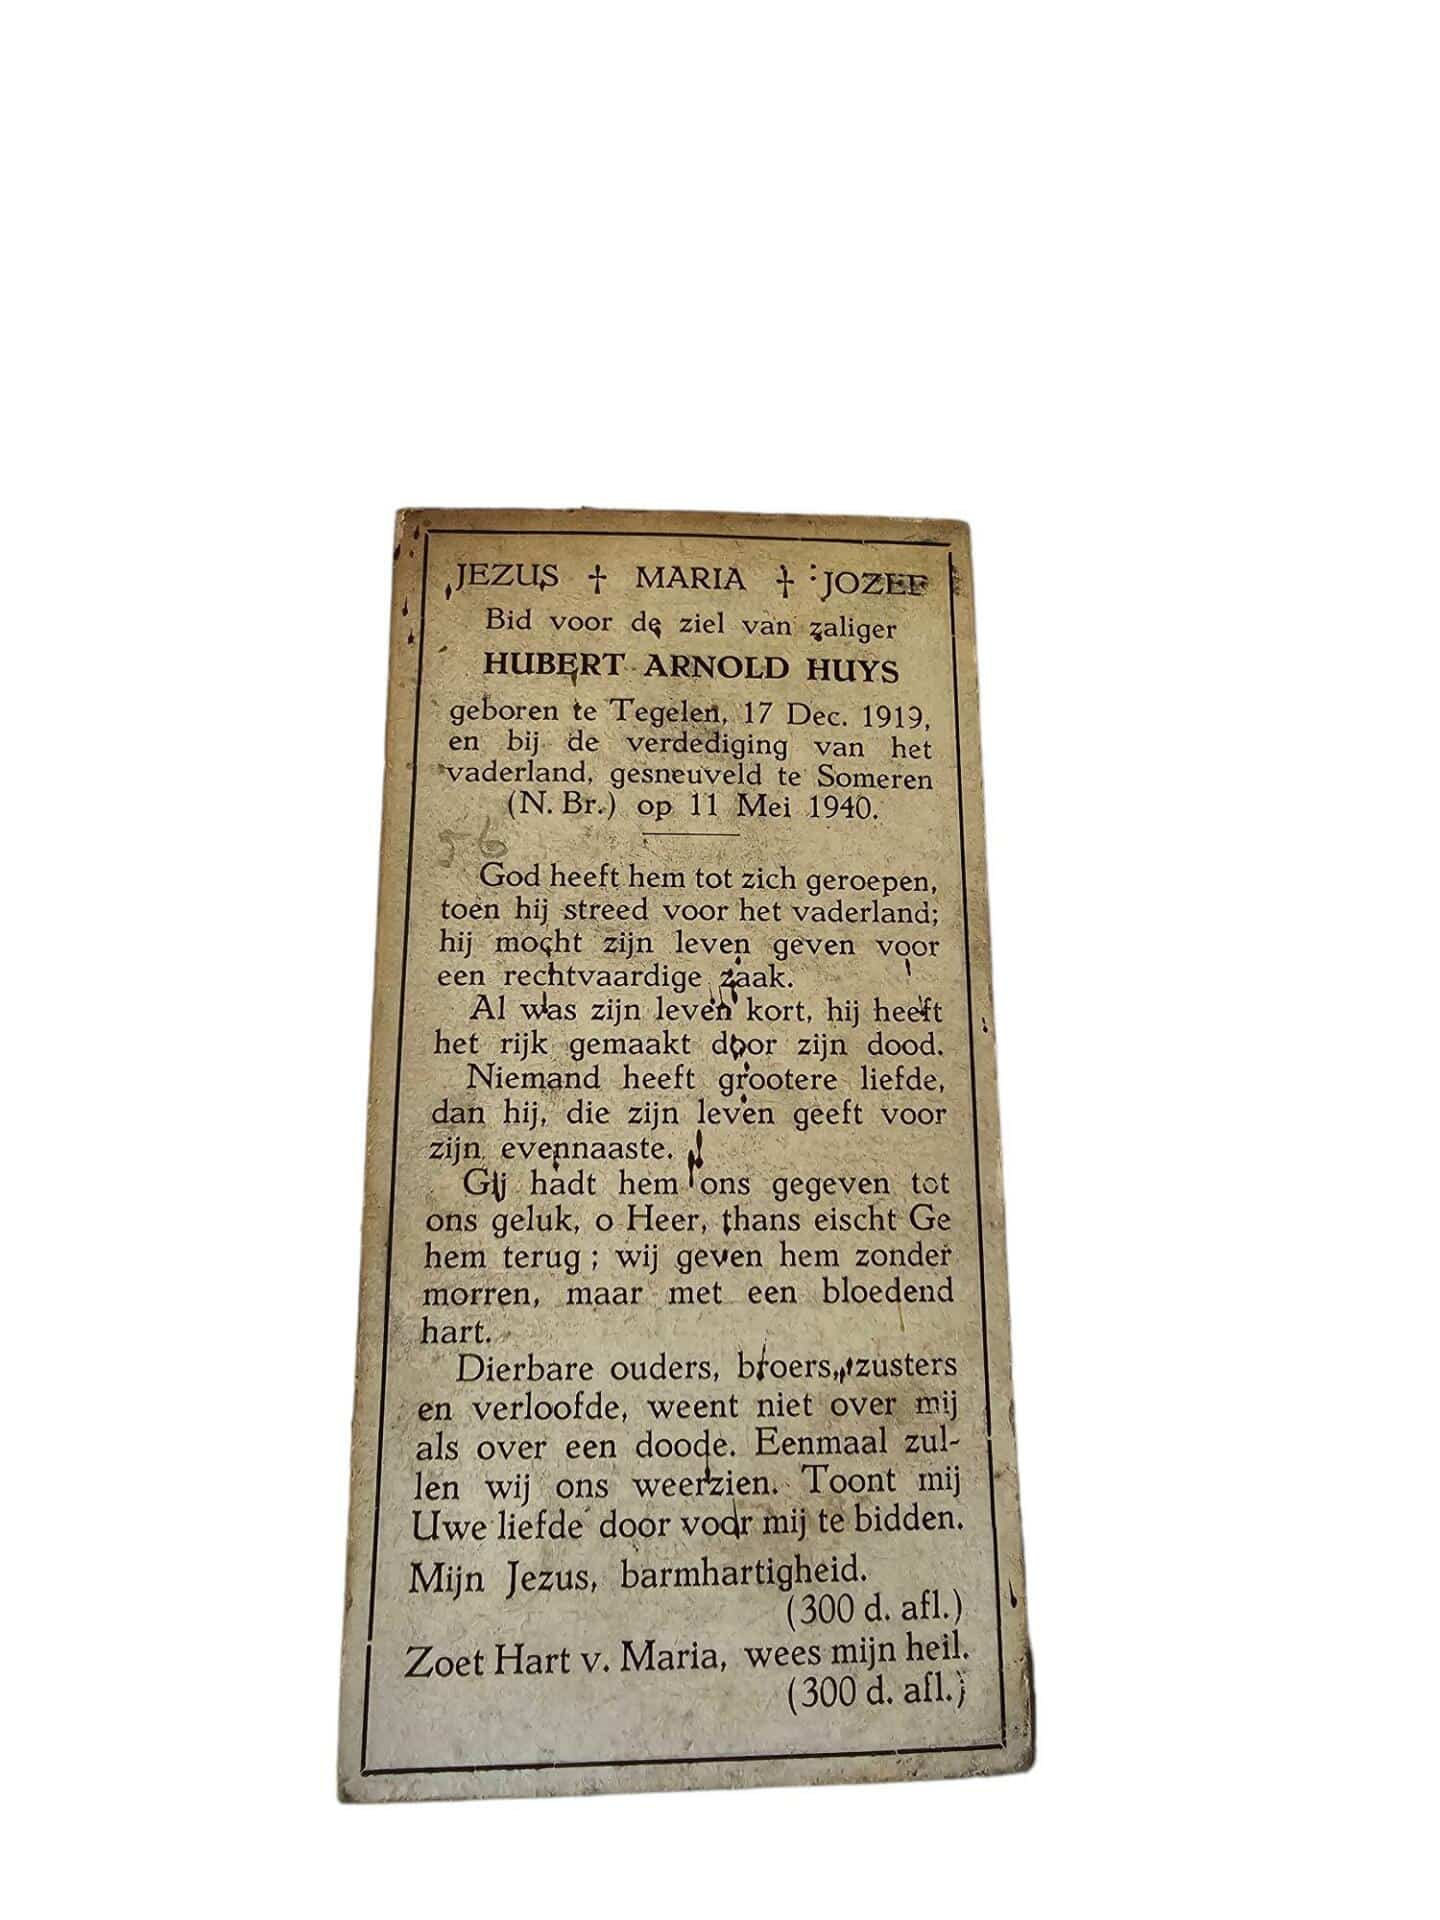 JEZUS † MARIA † JOZEF
Bid voor de ziel van zaliger
HUBERT ARNOLD HUYS
geboren te Tegelen, 17 Dec. 1919,
en bij de verdediging van het
vaderland, gesneuveld te Someren
(N. Br.) op 11 Mei 1940.
56
God heeft hem tot zich geroepen,
toen hij streed voor het vaderland;
hij mocht zijn leven geven voor
een rechtvaardige zaak.
Al was zijn leven kort, hij heeft
het rijk gemaakt door zijn dood.
Niemand heeft grootere liefde,
dan hij, die zijn leven geeft voor
zijn evennaaste.
Gij hadt hem ons gegeven tot
ons geluk, o Heer, thans eischt Ge
hem terug; wij geven hem zonder
morren, maar met een bloedend
hart.
Dierbare ouders, broers, zusters
en verloofde, weent niet over mij
als over een doode. Eenmaal zul-
len wij ons weerzien. Toont mij
Uwe liefde door voor mij te bidden.
Mijn Jezus, barmhartigheid.
(300 d. afl.)
Zoet Hart v. Maria, wees mijn heil.
(300 d. afl.)